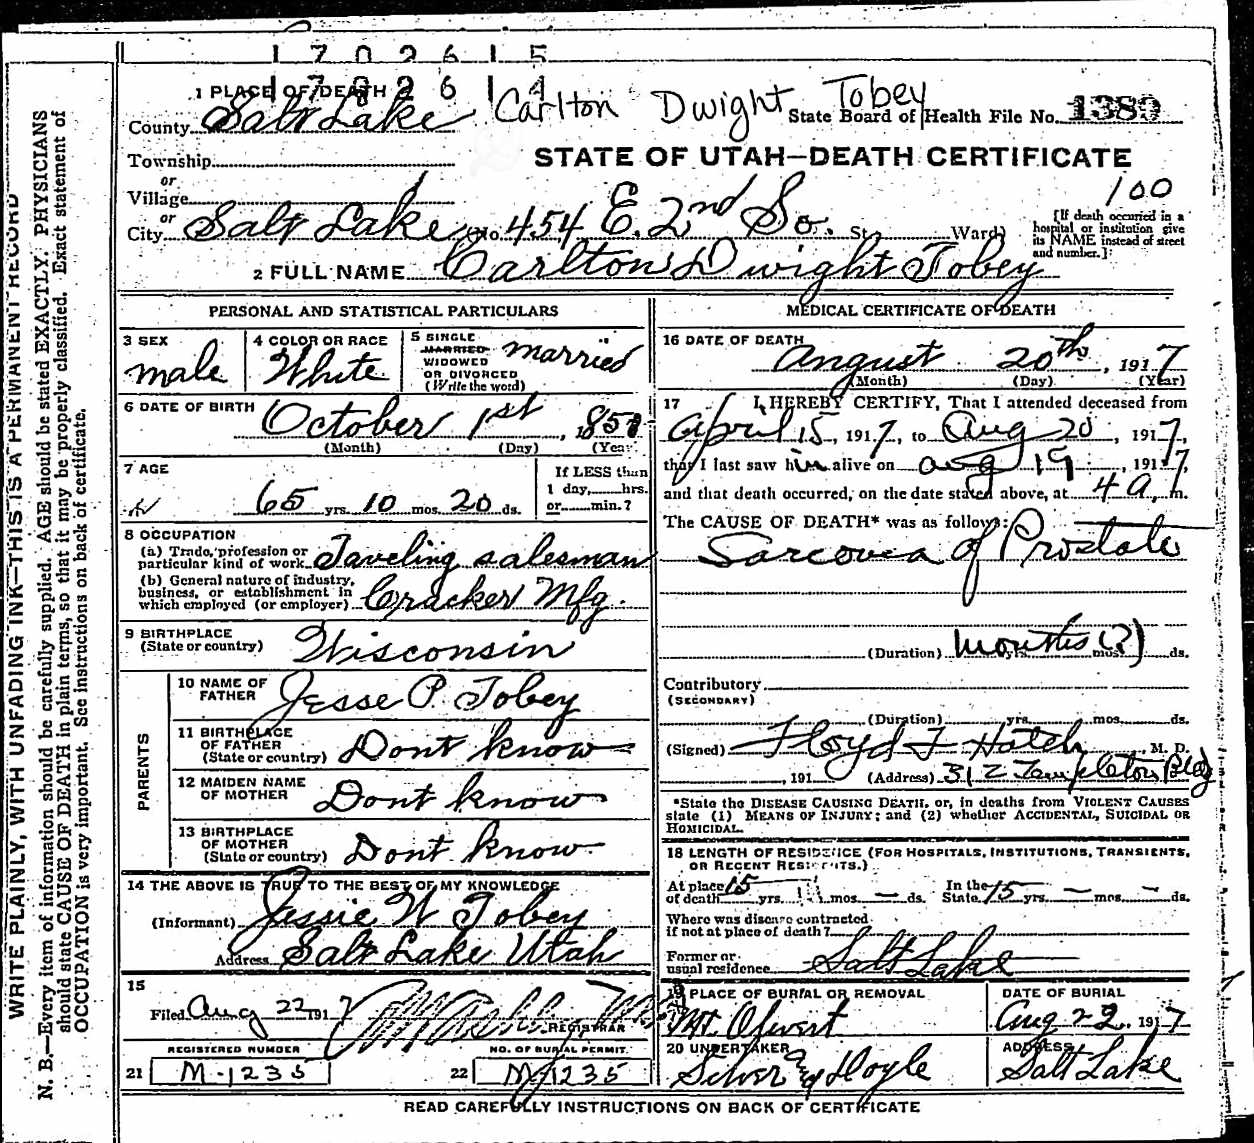 1 7 0 2 6 1 5
1 7 0 2 6 1 4
1 PLACE OF DEATH
County Salt Lake Carlton Dwight Tobey State Board of Health File No. 1389
Township
STATE OF UTAH—DEATH CERTIFICATE
or
Village
100
or
City Salt Lake (No. 454 E. 2nd So. St. Ward)
[If death occurred in a hospital or institution give its NAME instead of street and number.]
2 FULL NAME Carlton Dwight Tobey
PERSONAL AND STATISTICAL PARTICULARS
3 SEX male
4 COLOR OR RACE White
5 SINGLE MARRIED WIDOWED OR DIVORCED (Write the word) married
6 DATE OF BIRTH October 1st, 185
(Month) (Day) (Year)
7 AGE 65 yrs. 10 mos. 20 ds.
If LESS than 1 day, hrs. or min.?
8 OCCUPATION
(a) Trade, profession or particular kind of work Taveling salesman
(b) General nature of industry, business, or establishment in which employed (or employer) Cracker Mfg.
9 BIRTHPLACE (State or country) Wisconsin
PARENTS
10 NAME OF FATHER Jesse P. Tobey
11 BIRTHPLACE OF FATHER (State or country) Dont know
12 MAIDEN NAME OF MOTHER Dont know
13 BIRTHPLACE OF MOTHER (State or country) Dont know
14 THE ABOVE IS TRUE TO THE BEST OF MY KNOWLEDGE
(Informant) Jessie W Tobey
Address Salt Lake Utah
15
Filed Aug 22 1917
REGISTRAR
REGISTERED NUMBER
21 M-1235
NO. OF BURIAL PERMIT.
22 M-1235
MEDICAL CERTIFICATE OF DEATH
16 DATE OF DEATH August 20th, 1917
(Month) (Day) (Year)
17 I, HEREBY CERTIFY, That I attended deceased from
April 15, 1917, to Aug 20, 1917,
that I last saw him alive on aug 19, 1917,
and that death occurred, on the date stated above, at 4 a, m.
The CAUSE OF DEATH* was as follows:
Sarcoma of Prostate
(Duration) Months (?) yrs. mos. ds.
Contributory
(SECONDARY)
(Duration) yrs. mos. ds.
(Signed) Floyd F Hatch, M. D.
, 191 (Address) 312 Templeton Bldg
*State the DISEASE CAUSING DEATH, or, in deaths from VIOLENT CAUSES
state (1) MEANS OF INJURY; and (2) whether ACCIDENTAL, SUICIDAL OR
HOMICIDAL.
18 LENGTH OF RESIDENCE (FOR HOSPITALS, INSTITUTIONS, TRANSIENTS,
OR RECENT RESIDENTS.)
At place of death 15 yrs. mos. — ds. In the State 15 yrs. — mos. — ds.
Where was disease contracted
if not at place of death?
Former or usual residence Salt Lake
19 PLACE OF BURIAL OR REMOVAL
Mt. Olivert
DATE OF BURIAL
Aug 22. 1917
20 UNDERTAKER
Silver and Hoyle
ADDRESS
Salt Lake
READ CAREFULLY INSTRUCTIONS ON BACK OF CERTIFICATE
WRITE PLAINLY, WITH UNFADING INK—THIS IS A PERMANENT RECORD
N. B.—Every item of information should be carefully supplied. AGE should be stated EXACTLY. PHYSICIANS
should state CAUSE OF DEATH in plain terms, so that it may be properly classified. Exact statement of
OCCUPATION is very important. See instructions on back of certificate.